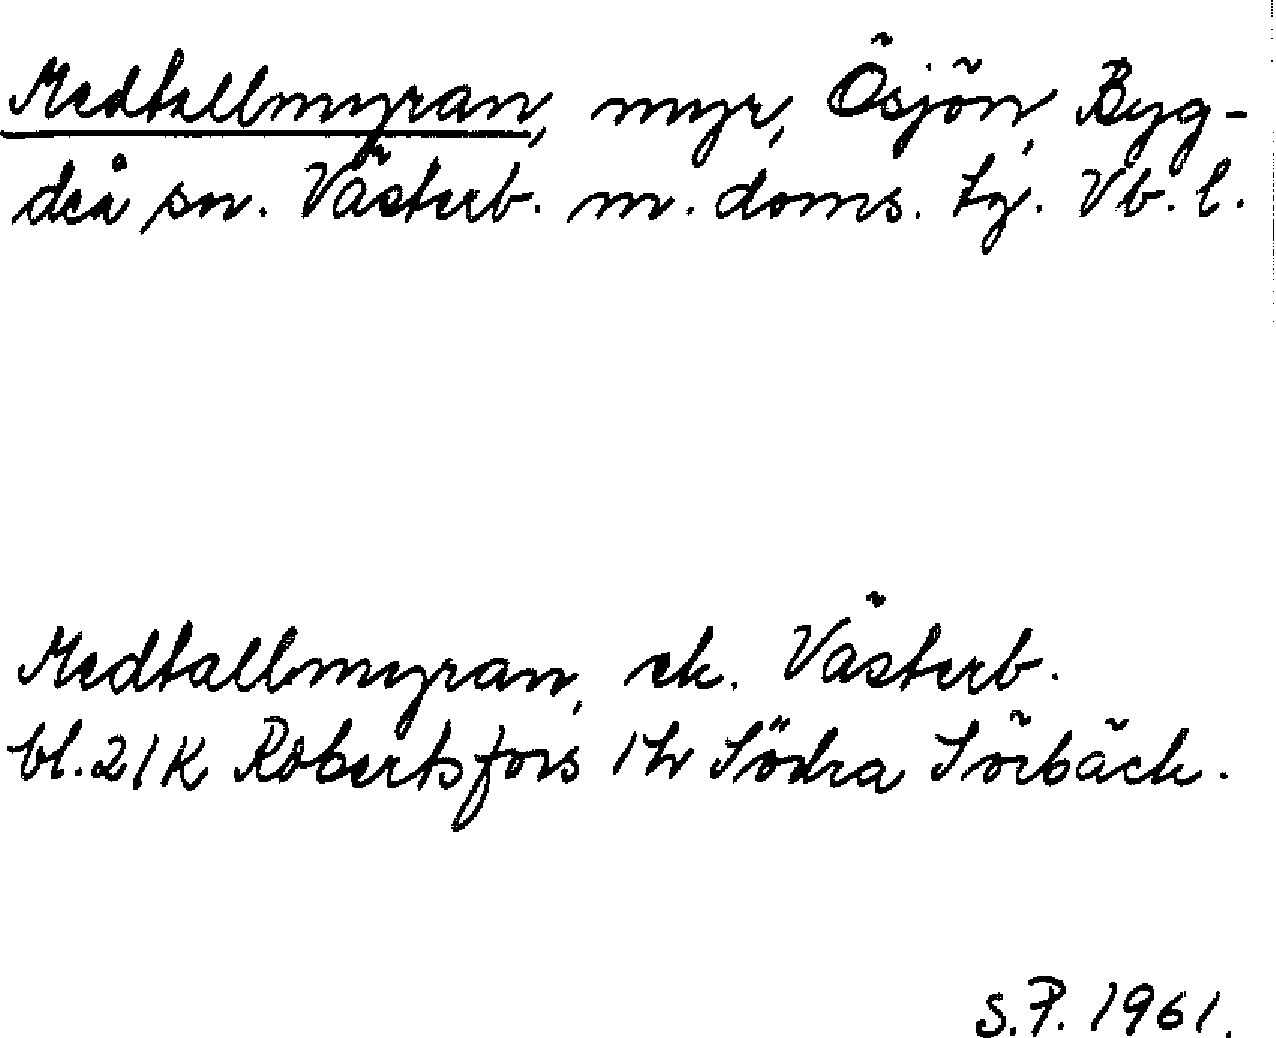 Medtallmyran, myr, Ösjön, Byg-
deå sn. Västerb. m. doms. tg. Vb. l.
Medtallmyran, ek. Västerb.
bl. 21K Robertsfors 1h Södra Sörbäck.
S.P. 1961.